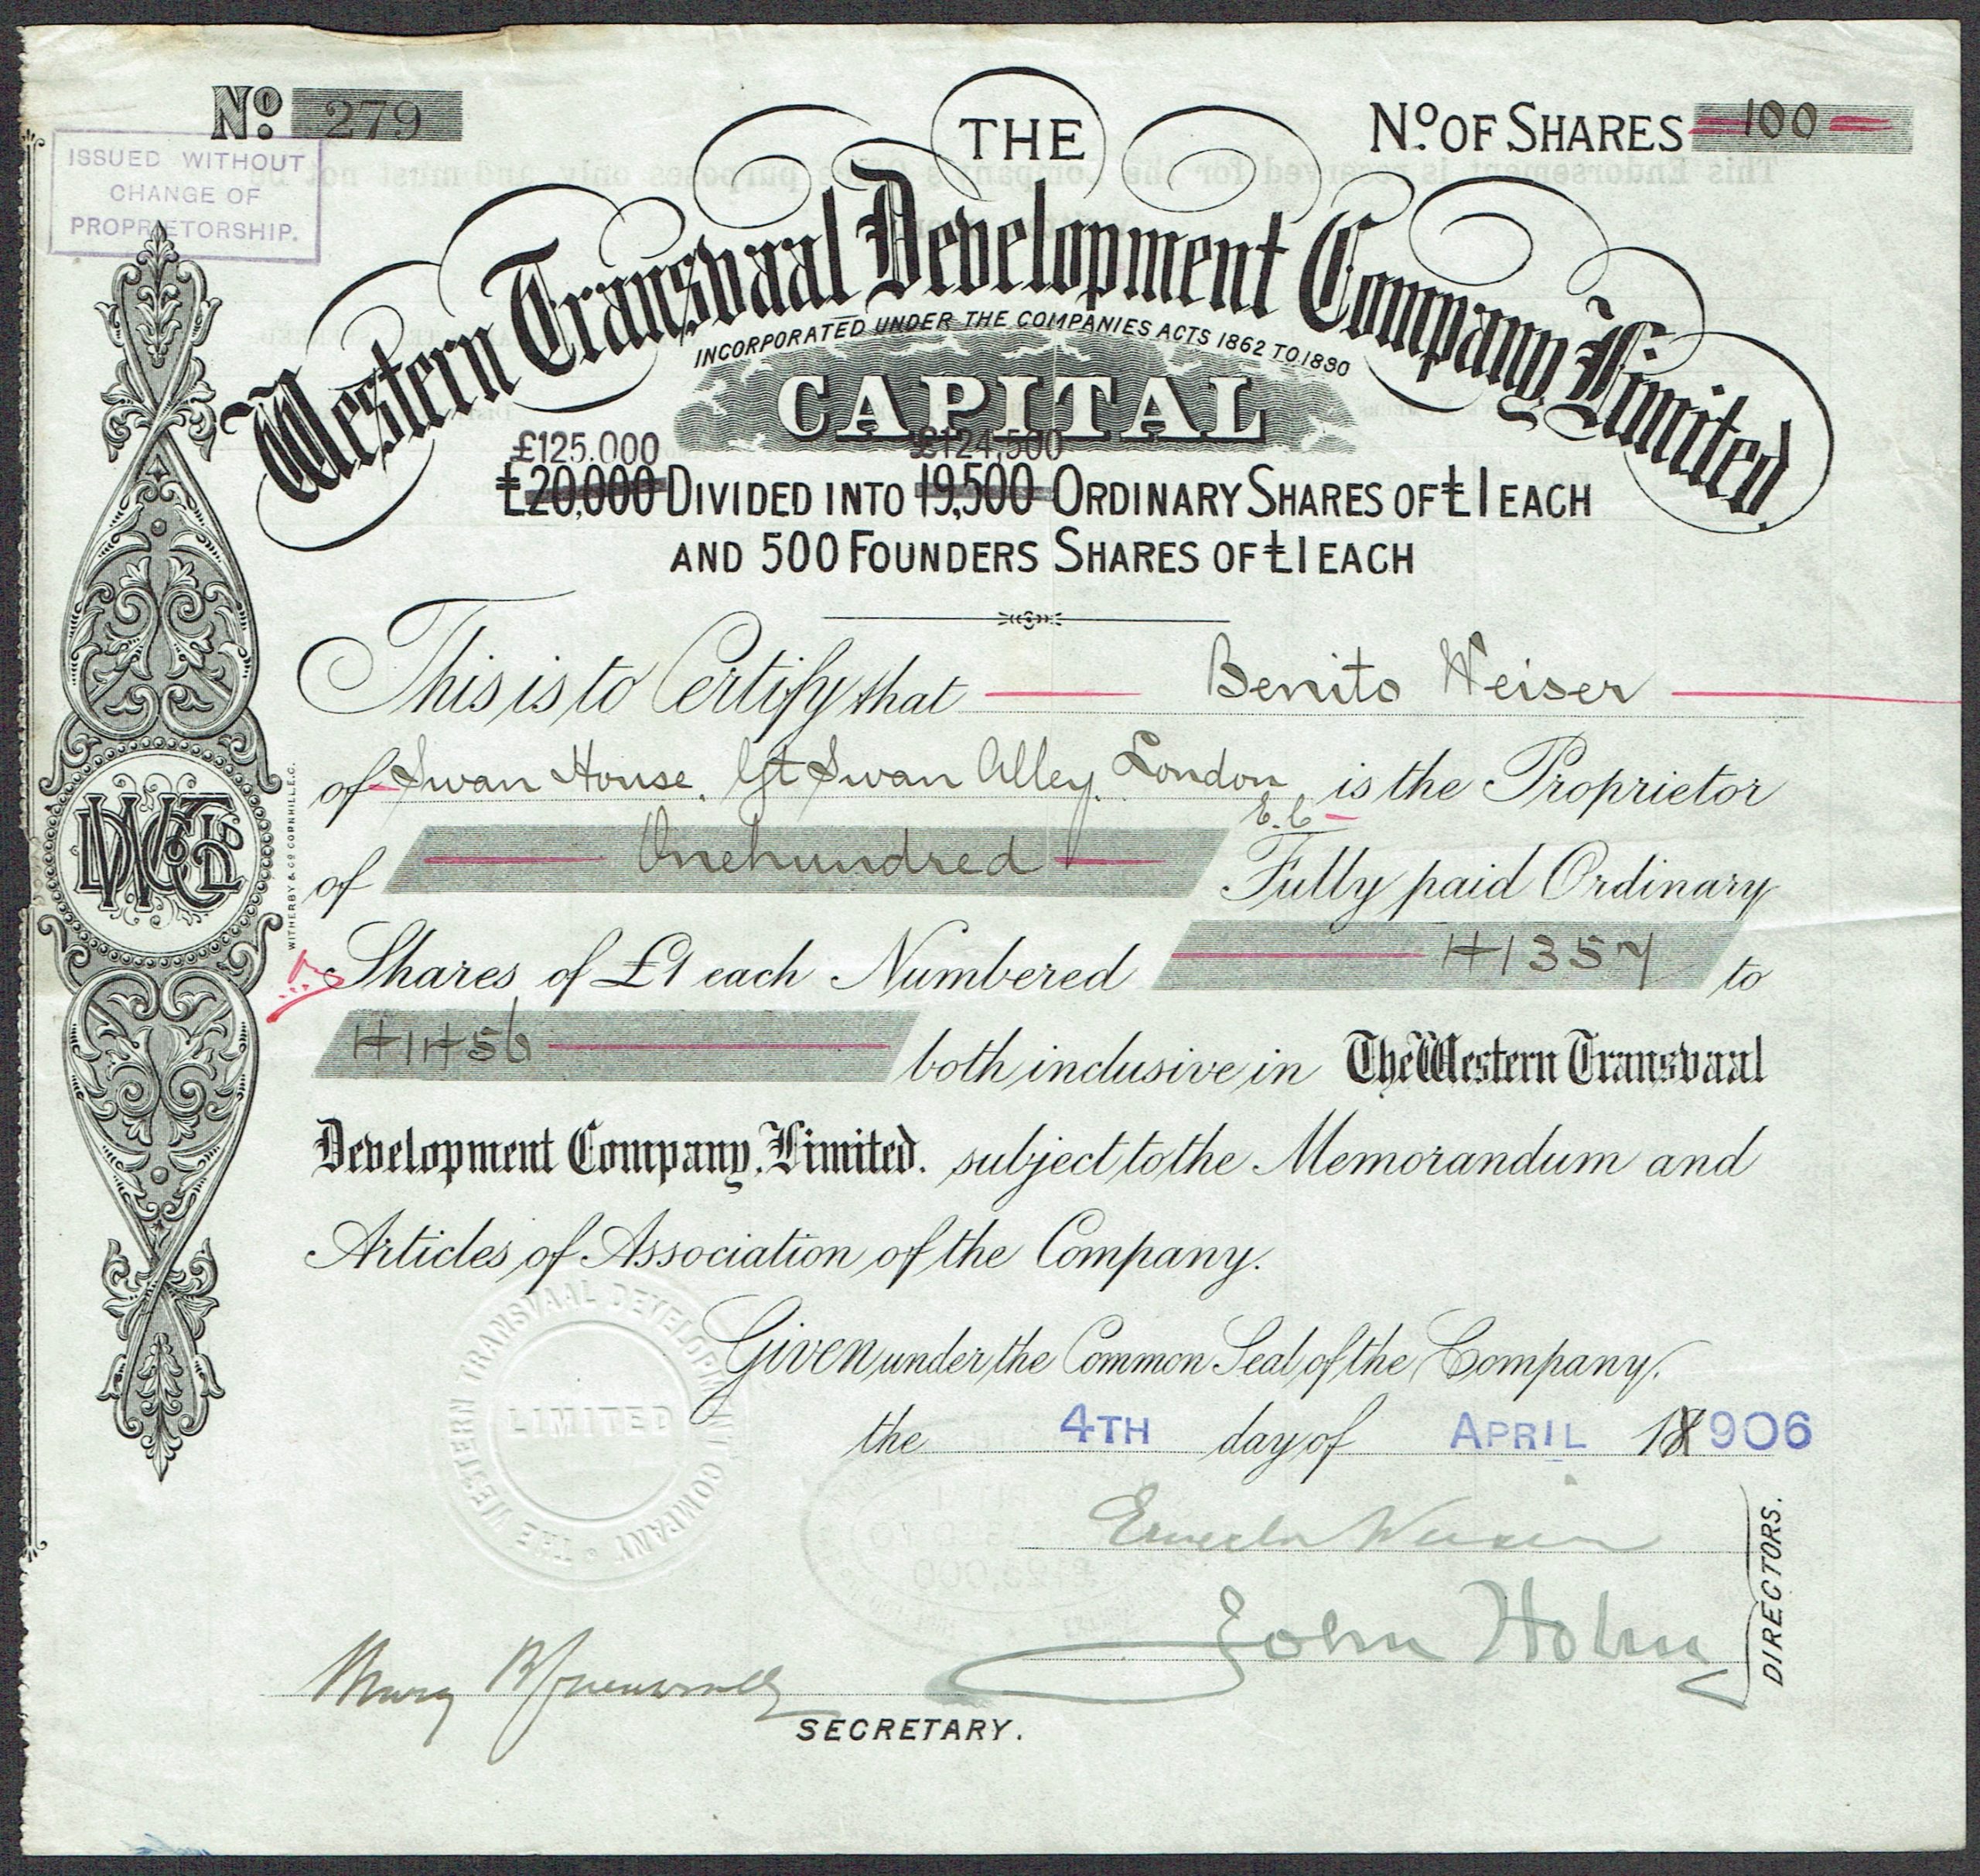 No. 279
No. OF SHARES 100
ISSUED WITHOUT
CHANGE OF
PROPRIETORSHIP.
THE
Western Transvaal Development Company, Limited.
INCORPORATED UNDER THE COMPANIES ACTS 1862 TO 1890
CAPITAL
£125.000 £124,500
£20,000 DIVIDED INTO 19,500 ORDINARY SHARES OF £1 EACH
AND 500 FOUNDERS SHARES OF £1 EACH
This is to Certify that Benito Weiser
of Swan House, Gt Swan Alley, London E.C. is the Proprietor
of Onehundred Fully paid Ordinary
Shares of £1 each Numbered 41357 to
41456 both inclusive in The Western Transvaal
Development Company, Limited. subject to the Memorandum and
Articles of Association of the Company.
Given under the Common Seal of the Company.
the 4TH day of APRIL 18906
THE WESTERN TRANSVAAL DEVELOPMENT COMPANY
LIMITED
John Holm
DIRECTORS.
SECRETARY.
WITHERBY & CO CORNHILL E.C.